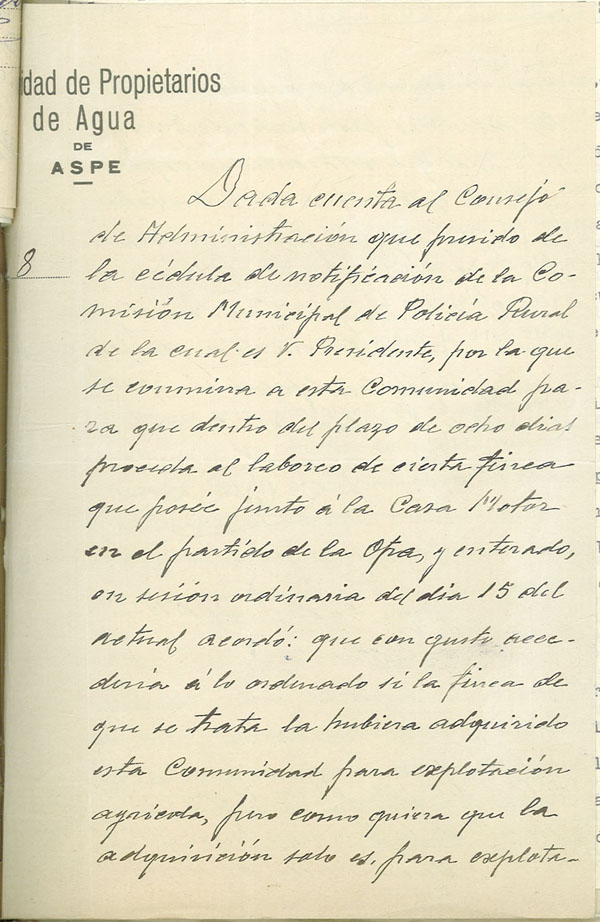 idad de Propietarios
de Agua
DE
ASPE
8
Dada cuenta al Consejo
de Administración que presido de
la cédula de notificación de la Co-
misión Municipal de Policía Rural
de la cual es V. Presidente, por la que
se conmina a esta Comunidad pa-
ra que dentro del plazo de ocho dias
proceda al laboreo de cierta finca
que poseé junto á la Casa Motor
en el partido de la Opa, y enterado,
en sesión ordinaria del dia 15 del
actual acordó: que con gusto acce-
deria á lo ordenado si la finca de
que se trata la hubiera adquirido
esta Comunidad para explotación
agricola, pero como quiera que la
adquisición solo es, para explota-